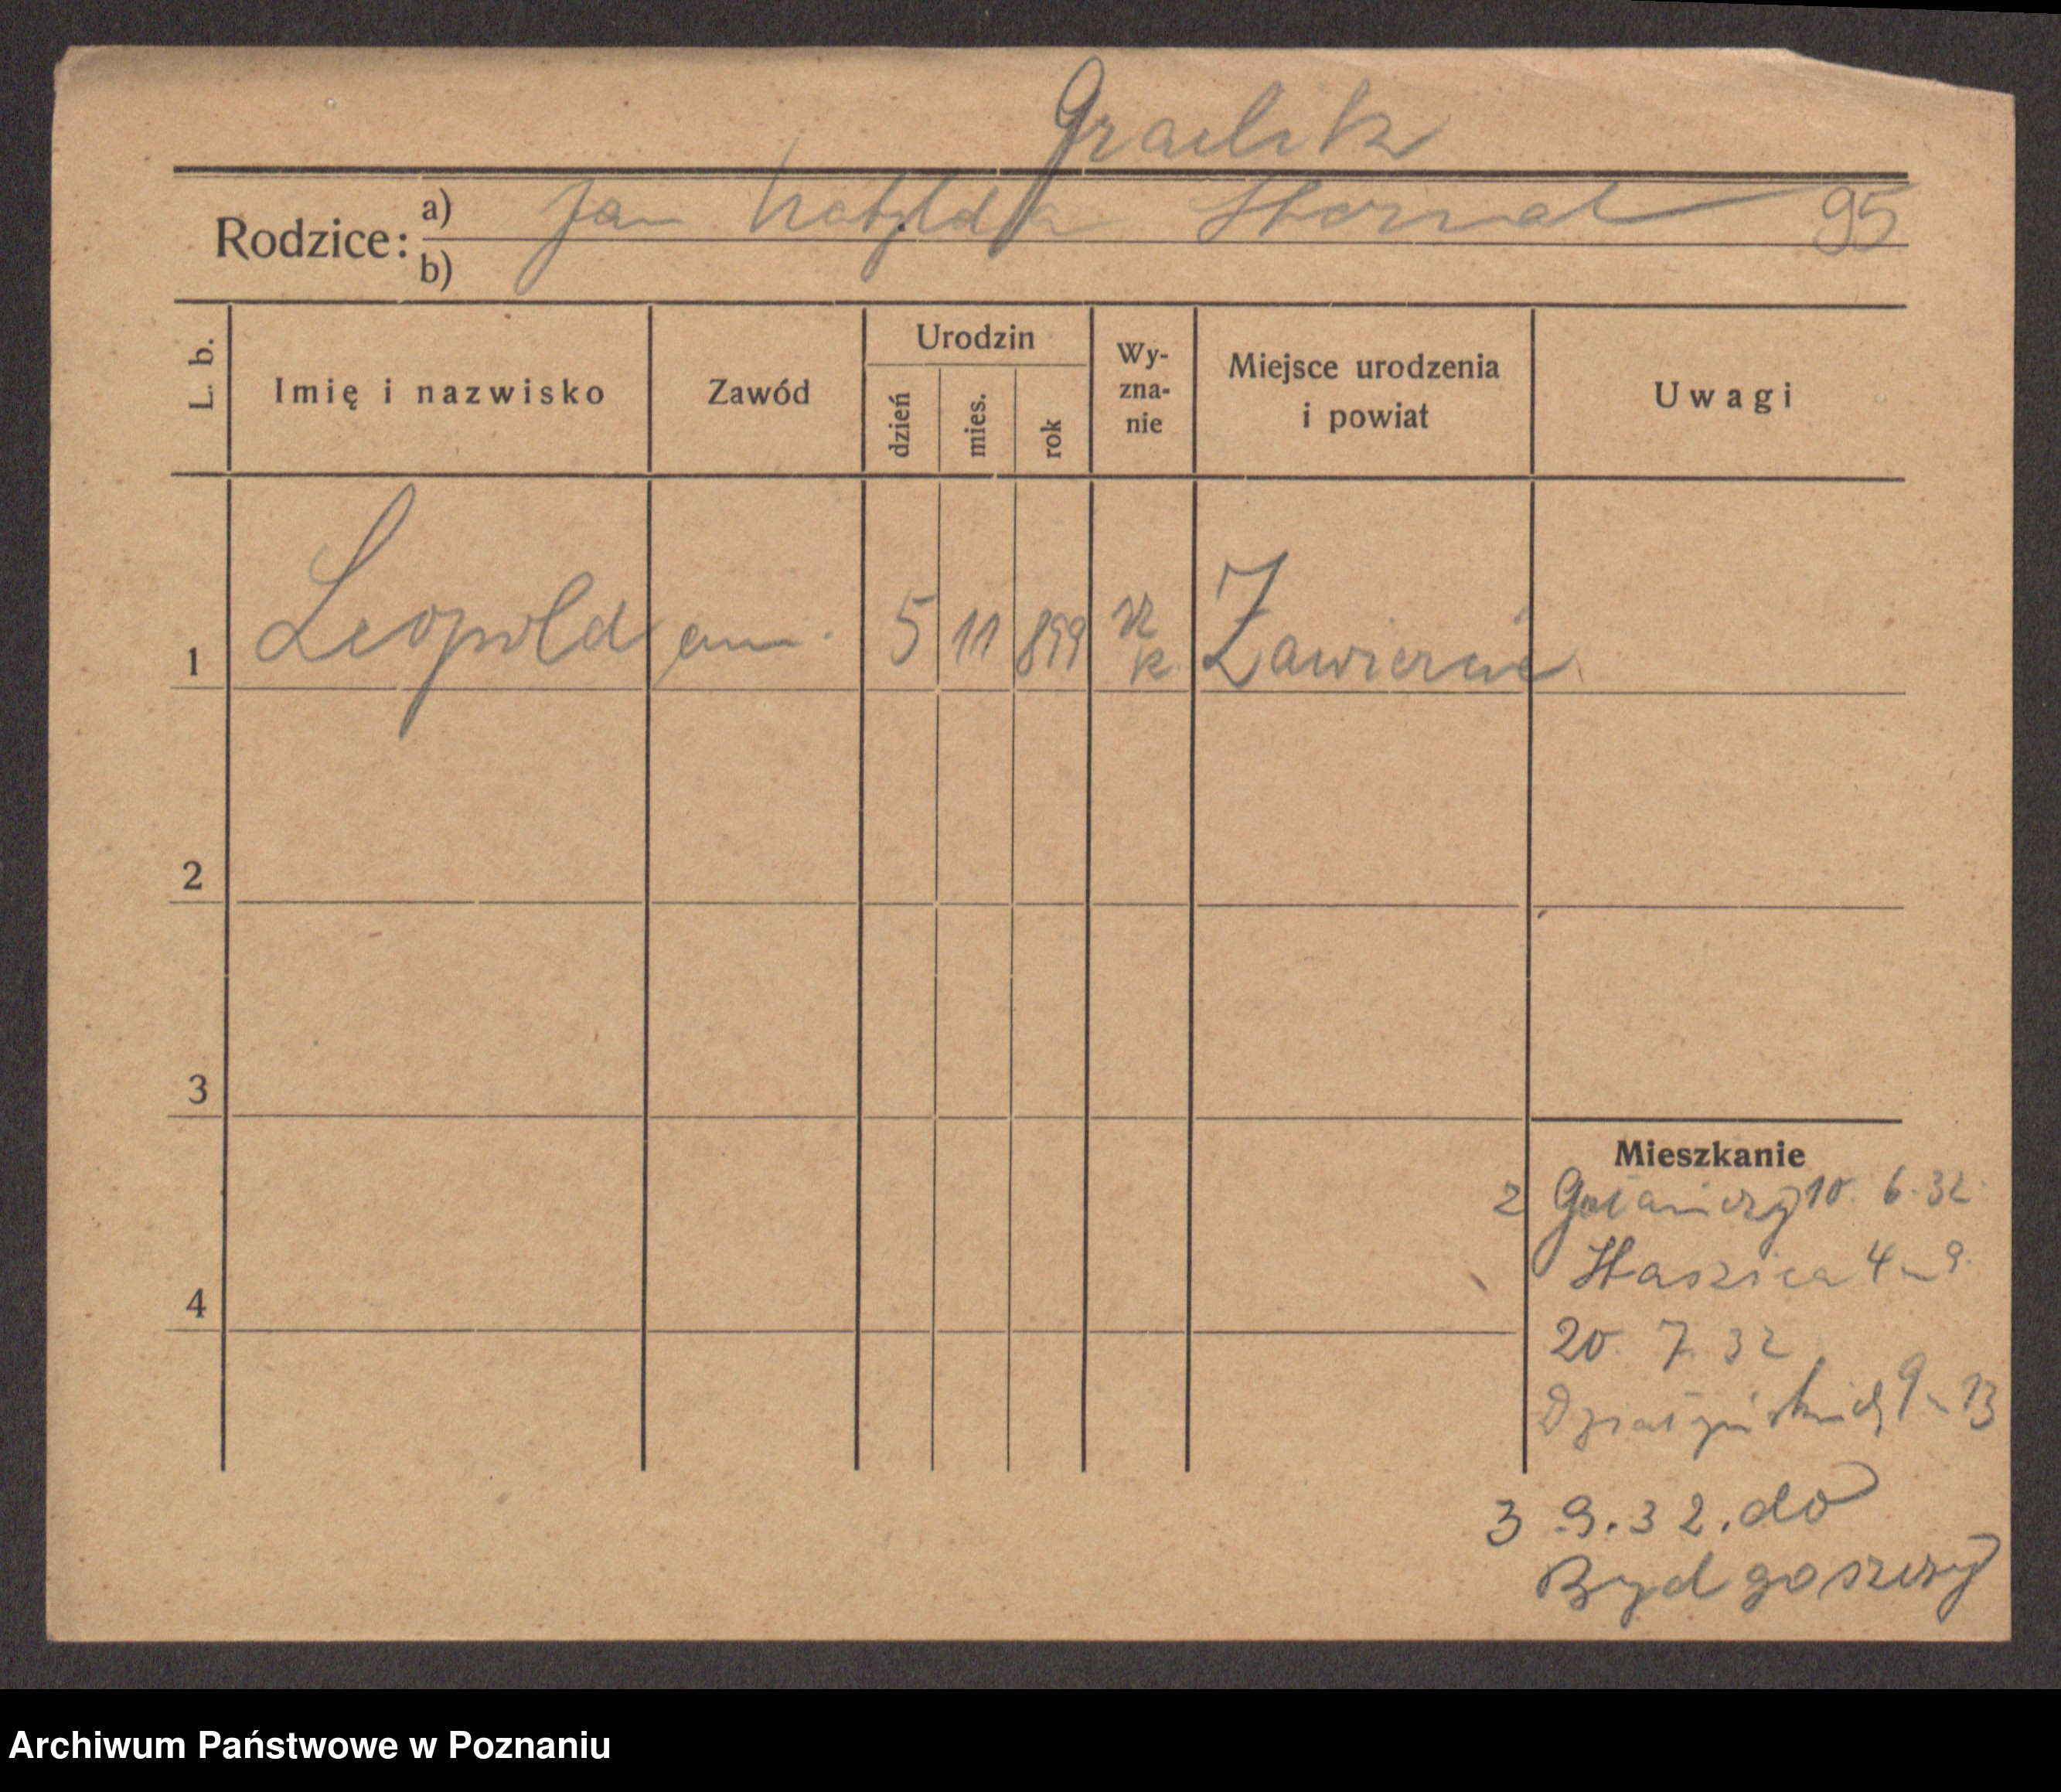 Graelik
Rodzice:
a) Jan Matylda Skorna 95
b)
L. b.
Imię i nazwisko
Zawód
Urodzin
dzień
mies.
rok
Wy-
zna-
nie
Miejsce urodzenia
i powiat
Uwagi
1 Leopold em. 5 11 899 rz k Zawiercie
2
3
4
Mieszkanie
z Gołańczy 10. 6. 32
Staszica 4 m 9.
20. 7. 32
Działyńskich 9 m 13
3 .9. 32. do
Bydgoszczy
Archiwum Państwowe w Poznaniu